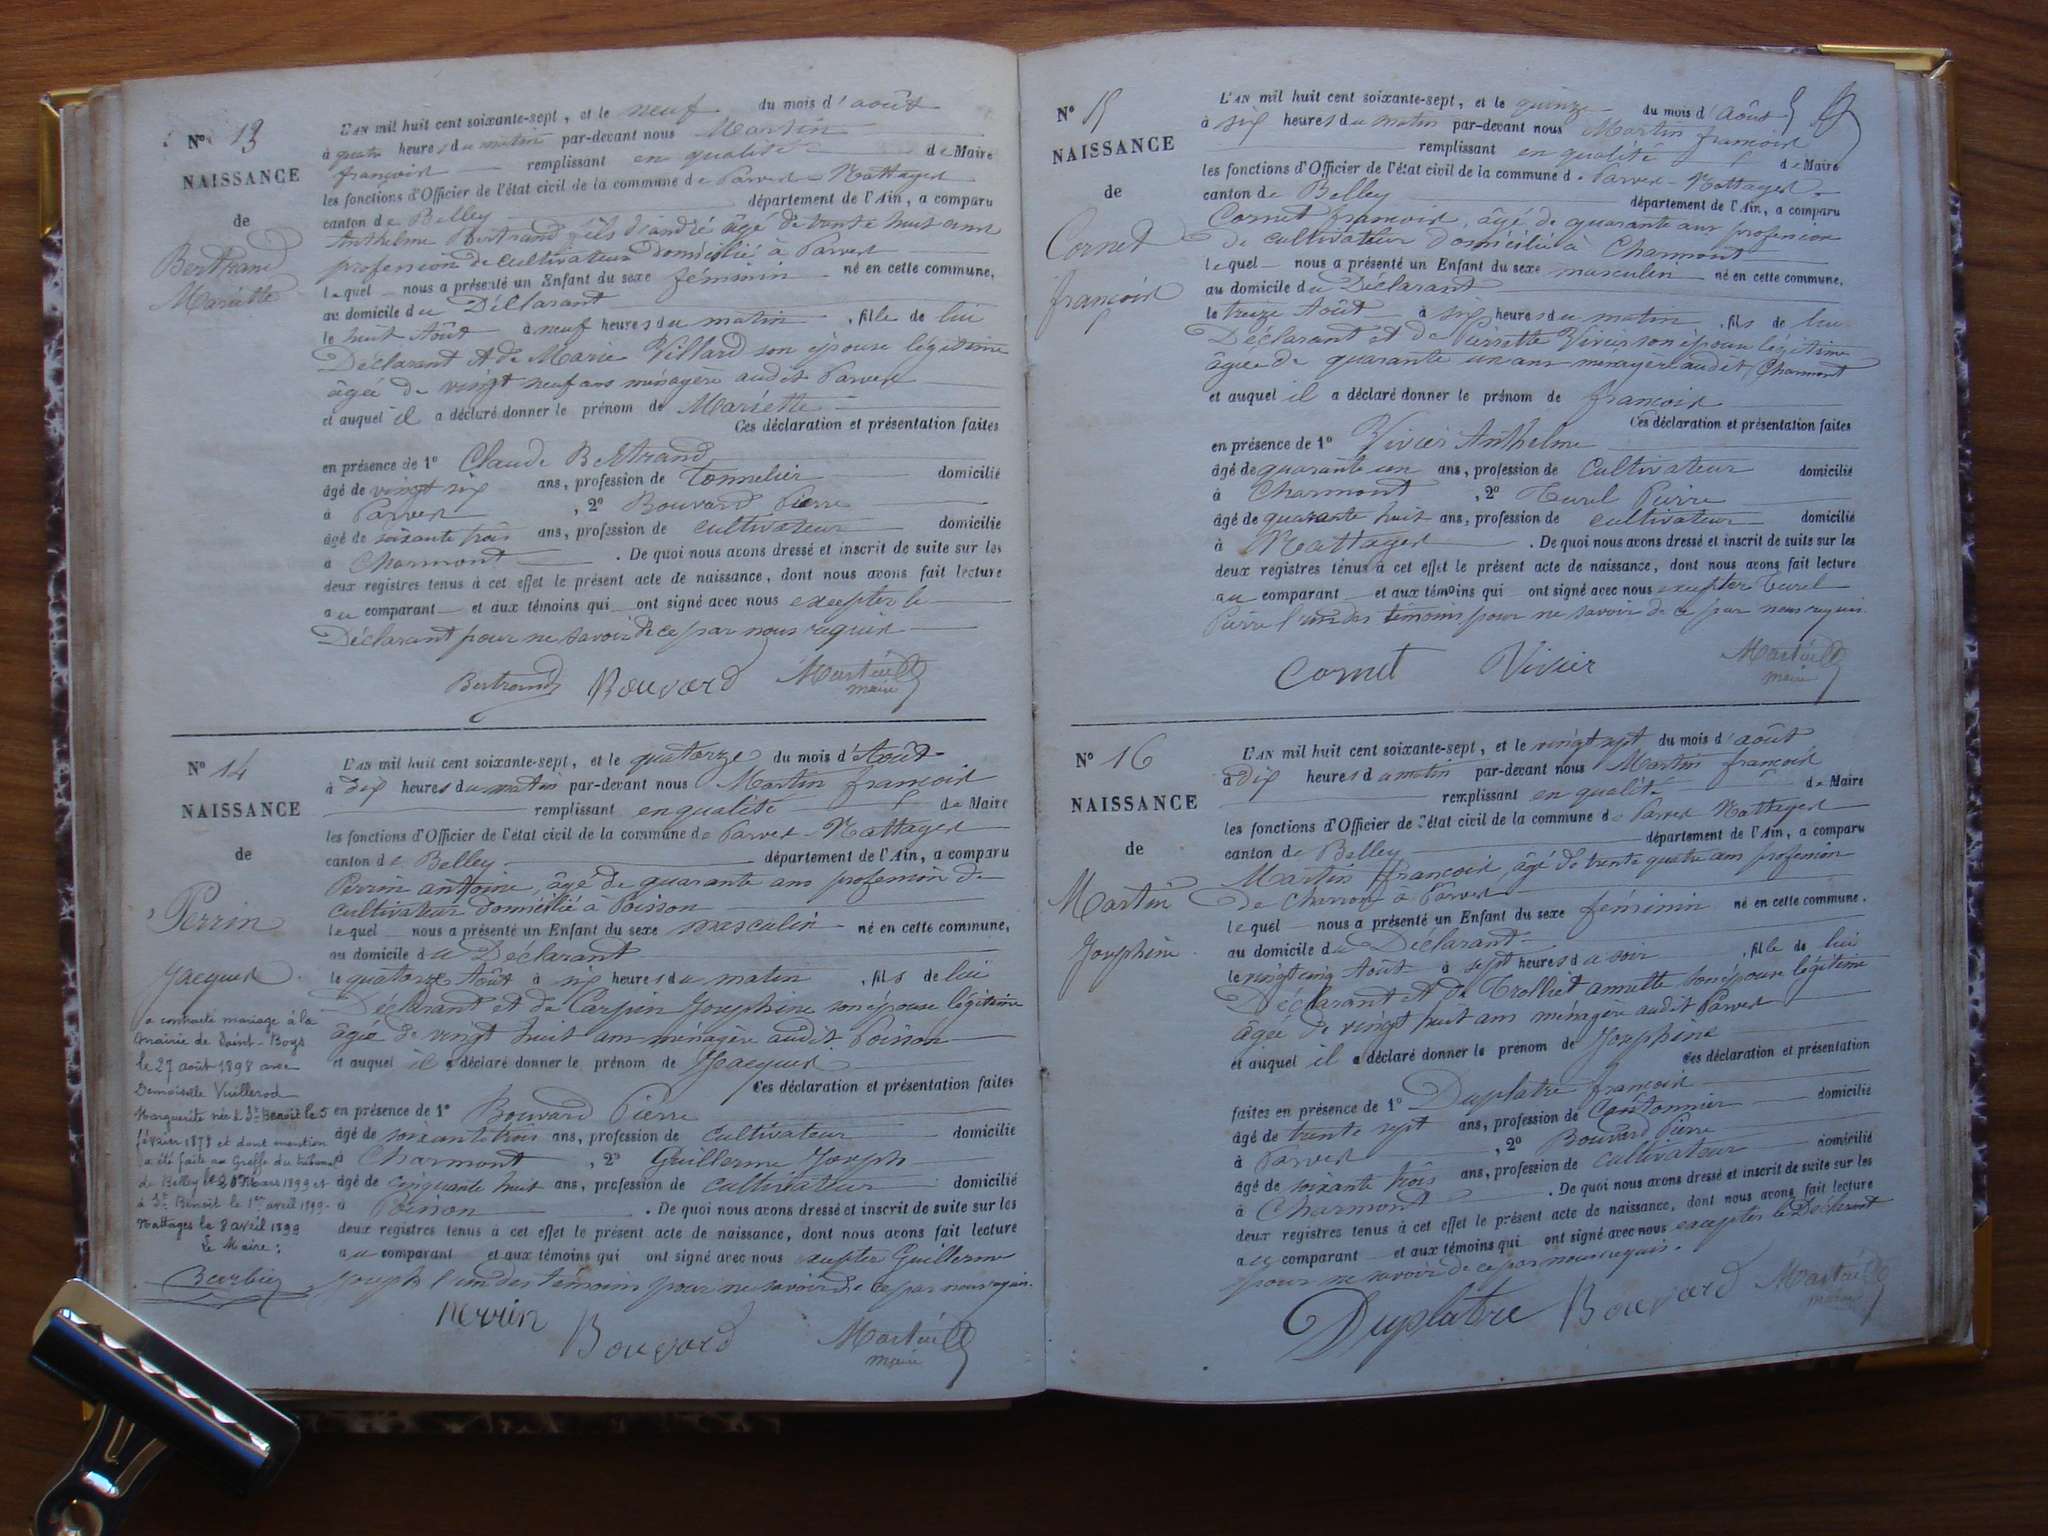 N° 13
NAISSANCE
de
Bertrand
Mariette
L'AN mil huit cent soixante-sept, et le neuf du mois d'août
à quatre heures du matin par-devant nous Martin
françois remplissant en qualité de Maire
les fonctions d'Officier de l'état civil de la commune de Parves-Nattages
canton de Belley département de l'Ain, a comparu
Anthelme Bertrand fils d'andré âgé de trente huit ans
profession de cultivateur domicilié à Parves
lequel nous a présenté un Enfant du sexe féminin né en cette commune,
au domicile du Déclarant
le huit Août à neuf heures du matin, fille de lui
Déclarant et de Marie Villard son épouse légitime
âgée de vingt neuf ans ménagère audit Parves
et auquel il a déclaré donner le prénom de Mariette
Ces déclaration et présentation faites
en présence de 1° Claude Bertrand
âgé de vingt six ans, profession de Tonnelier domicilié
à Parves, 2° Bouvard Pierre
âgé de soixante trois ans, profession de cultivateur domicilié
à Charmont. De quoi nous avons dressé et inscrit de suite sur les
deux registres tenus à cet effet le présent acte de naissance, dont nous avons fait lecture
au comparant et aux témoins qui ont signé avec nous excepter le
Déclarant pour ne savoir de ce par nous requis
Bertrand Bouvard Martin
maire
N° 14
NAISSANCE
de
Perrin
Jacques
a contracté mariage à la
mairie de Saint-Boys
le 27 août 1898 avec
Demoiselle Vuillerod
Marguerite née à St Benoit le 5
février 1878 et dont mention
a été faite au Greffe du tribunal
de Belley le Mars 1899 et
à St Benoit le 1er avril 1899.
Nattages le 8 avril 1899
Le Maire :
Barbier
L'AN mil huit cent soixante-sept, et le quatorze du mois d'Août
à dix heures du matin par-devant nous Martin françois
remplissant en qualité de Maire
les fonctions d'Officier de l'état civil de la commune de Parves-Nattages
canton de Belley département de l'Ain, a comparu
Perrin antoine, âgé de quarante ans profession de
cultivateur domicilié à Poisson
lequel nous a présenté un Enfant du sexe masculin né en cette commune,
au domicile du Déclarant
le quatorze Août à six heures du matin, fils de lui
Déclarant et de Carpin Josephine son épouse légitime
âgée de vingt huit ans ménagère audit Poisson
et auquel il a déclaré donner le prénom de Jacques
Ces déclaration et présentation faites
en présence de 1° Bouvard Pierre
âgé de soixante trois ans, profession de cultivateur domicilié
à Charmont, 2° Guillerme Joseph
âgé de cinquante huit ans, profession de cultivateur domicilié
à Poisson. De quoi nous avons dressé et inscrit de suite sur les
deux registres tenus à cet effet le présent acte de naissance, dont nous avons fait lecture
au comparant et aux témoins qui ont signé avec nous excepter Guillerme
Joseph l'un des témoins pour ne savoir de ce par nous requis.
Perrin Bouvard Martin
maire
N° 15
NAISSANCE
de
Cornet
françois
L'AN mil huit cent soixante-sept, et le quinze du mois d'Août
à six heures du matin par-devant nous Martin françois
remplissant en qualité de Maire
les fonctions d'Officier de l'état civil de la commune de Parves-Nattages
canton de Belley département de l'Ain, a comparu
Cornet françois, âgé de quarante ans profession
de cultivateur domicilié à Charmont
lequel nous a présenté un Enfant du sexe masculin né en cette commune,
au domicile du Déclarant
le treize Août à six heures du matin, fils de lui
Déclarant et de Pierrette Vivier son épouse légitime
âgée de quarante un ans ménagère audit Charmont
et auquel il a déclaré donner le prénom de françois
Ces déclaration et présentation faites
en présence de 1° Vivier Anthelme
âgé de quarante un ans, profession de Cultivateur domicilié
à Charmont, 2° Turel Pierre
âgé de quarante huit ans, profession de cultivateur domicilié
à Nattages. De quoi nous avons dressé et inscrit de suite sur les
deux registres tenus à cet effet le présent acte de naissance, dont nous avons fait lecture
au comparant et aux témoins qui ont signé avec nous excepter Turel
Pierre l'un des témoins pour ne savoir de ce par nous requis.
Cornet Vivier Martin
maire
N° 16
NAISSANCE
de
Martin
Josephine
L'AN mil huit cent soixante-sept, et le vingt sept du mois d'août
à dix heures du matin par-devant nous Martin françois
remplissant en qualité de Maire
les fonctions d'Officier de l'état civil de la commune de Parves-Nattages
canton de Belley département de l'Ain, a comparu
Martin françois, âgé de trente quatre ans profession
de charron à Parves
lequel nous a présenté un Enfant du sexe féminin né en cette commune.
au domicile du Déclarant
le vingt cinq Août à sept heures du soir, fille de lui
Déclarant et de Trolliet annette son épouse légitime
âgée de vingt huit ans ménagère audit Parves
et auquel il a déclaré donner le prénom de Josephine
Ces déclaration et présentation
faites en présence de 1° Duplatre françois
âgé de trente sept ans, profession de Cantonnier domicilié
à Parves, 2° Bouvard Pierre
âgé de soixante trois ans, profession de cultivateur domicilié
à Charmont. De quoi nous avons dressé et inscrit de suite sur les
deux registres tenus à cet effet le présent acte de naissance, dont nous avons fait lecture
au comparant et aux témoins qui ont signé avec nous excepter le Déclarant
pour ne savoir de ce par nous requis.
Duplâtre Bouvard Martin
maire